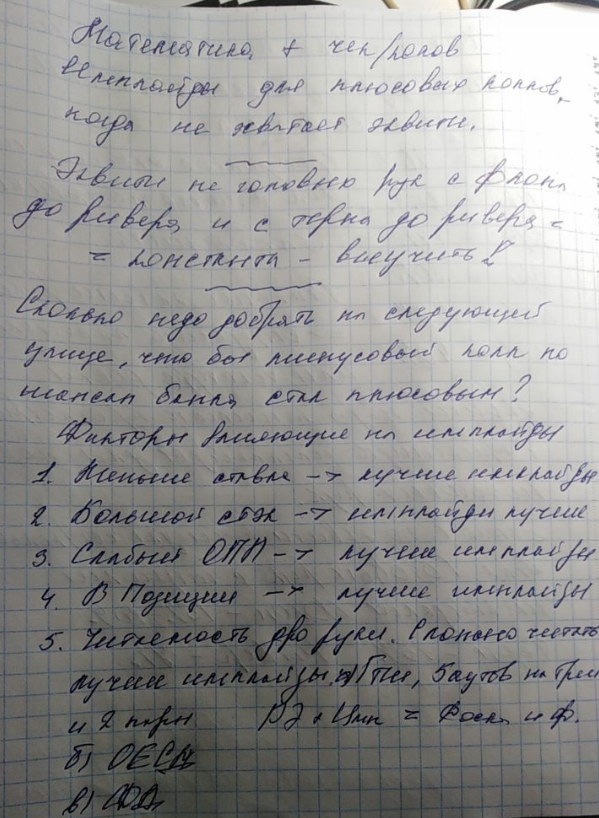 Математика + чек/колов
Имплайды для плюсовых колов,
когда не хватает эквити.
Эквити не готовых рук с флопа
до ривера и с терна до ривера =
= константа - выучить!
Сколько надо добрать на следующей
улице, что бы минусовый колл по
шансам банка стал плюсовым?
Факторы влияющие на имплайды
1. Меньше ставка -> лучше имплайды
2. Большой стэк -> имплайды лучше
3. Слабый ОПП -> лучше имплайды
4. В Позиции -> лучше имплайды
5. Читаемость дро руки. Сложно читать
лучше имплайды, 5 аутов на трипс
и 2 пары = и ф.
б) ОЕСД
в) ФД